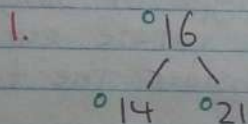 1. °16
°14 °21